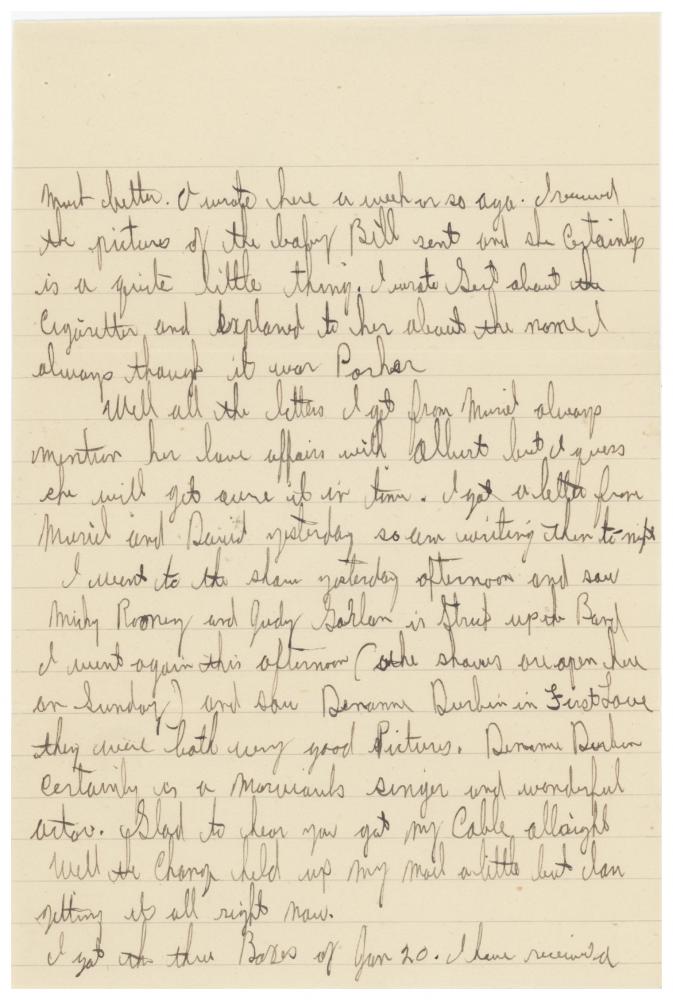 must better. I wrote here a week or so ago. I received
the pictures of the baby Bill sent and she Certainly
is a quite little thing. I wrote Gert about the
Cigarettes and Explaned to her about the name I
always thaugh it was Parker
Well all the letters I get from Muriel always
mention her love affairs with Albert but I guess
she will get aure it in time. I got a letter from
Muriel and David yesterday so am writing then to night
I went to the show yesterday afternoon and saw
Micky Rooney and Judy Garlan is Strick up the Band
I went again this afternoon (the shows are open here
on Sunday) and saw Denanne Durbin in First Love
they were both very good Pictures. Denanne Durbin
Certainly is a singer and wonderful
actor. Glad to hear you got my Cable allright
Well the Change held up my mail a little but I am
getting it all right now.
I got the three Boxes of Jan 20. I have received